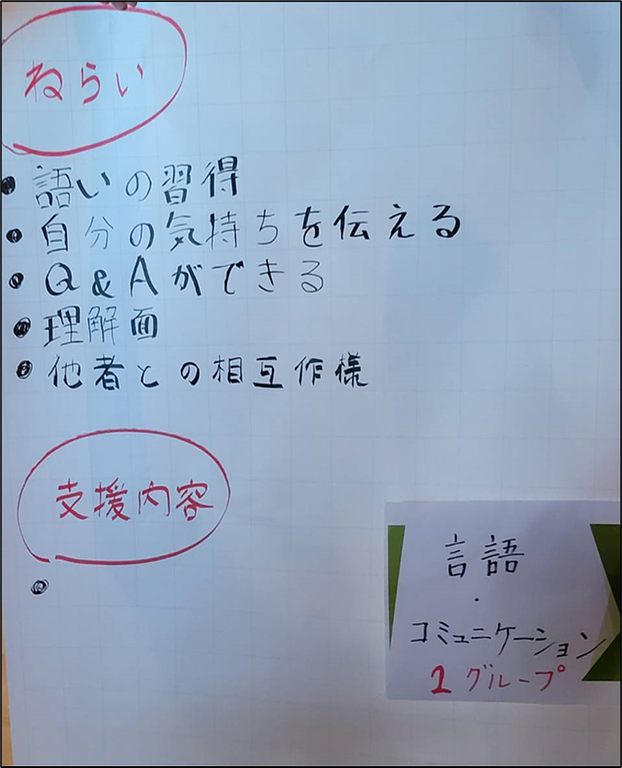 ねらい
・語いの習得
・自分の気持ちを伝える
・Q&Aができる
・理解面
・他者との相互作様
支援内容
・
言語
・
コミュニケーション
1グループ